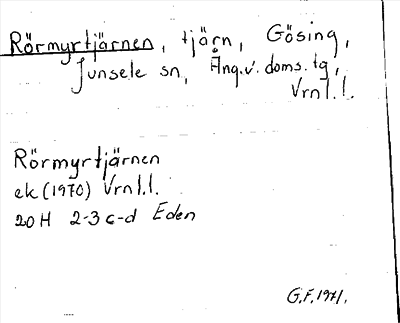 Rörmyrtjärnen, tjärn, Gösing,
Junsele sn, Ång.v. doms.tg,
Vrnl.l.
Rörmyrtjärnen
ek (1970) Vrnl.l.
20 H 2-3 c-d Eden
G.F. 1971.